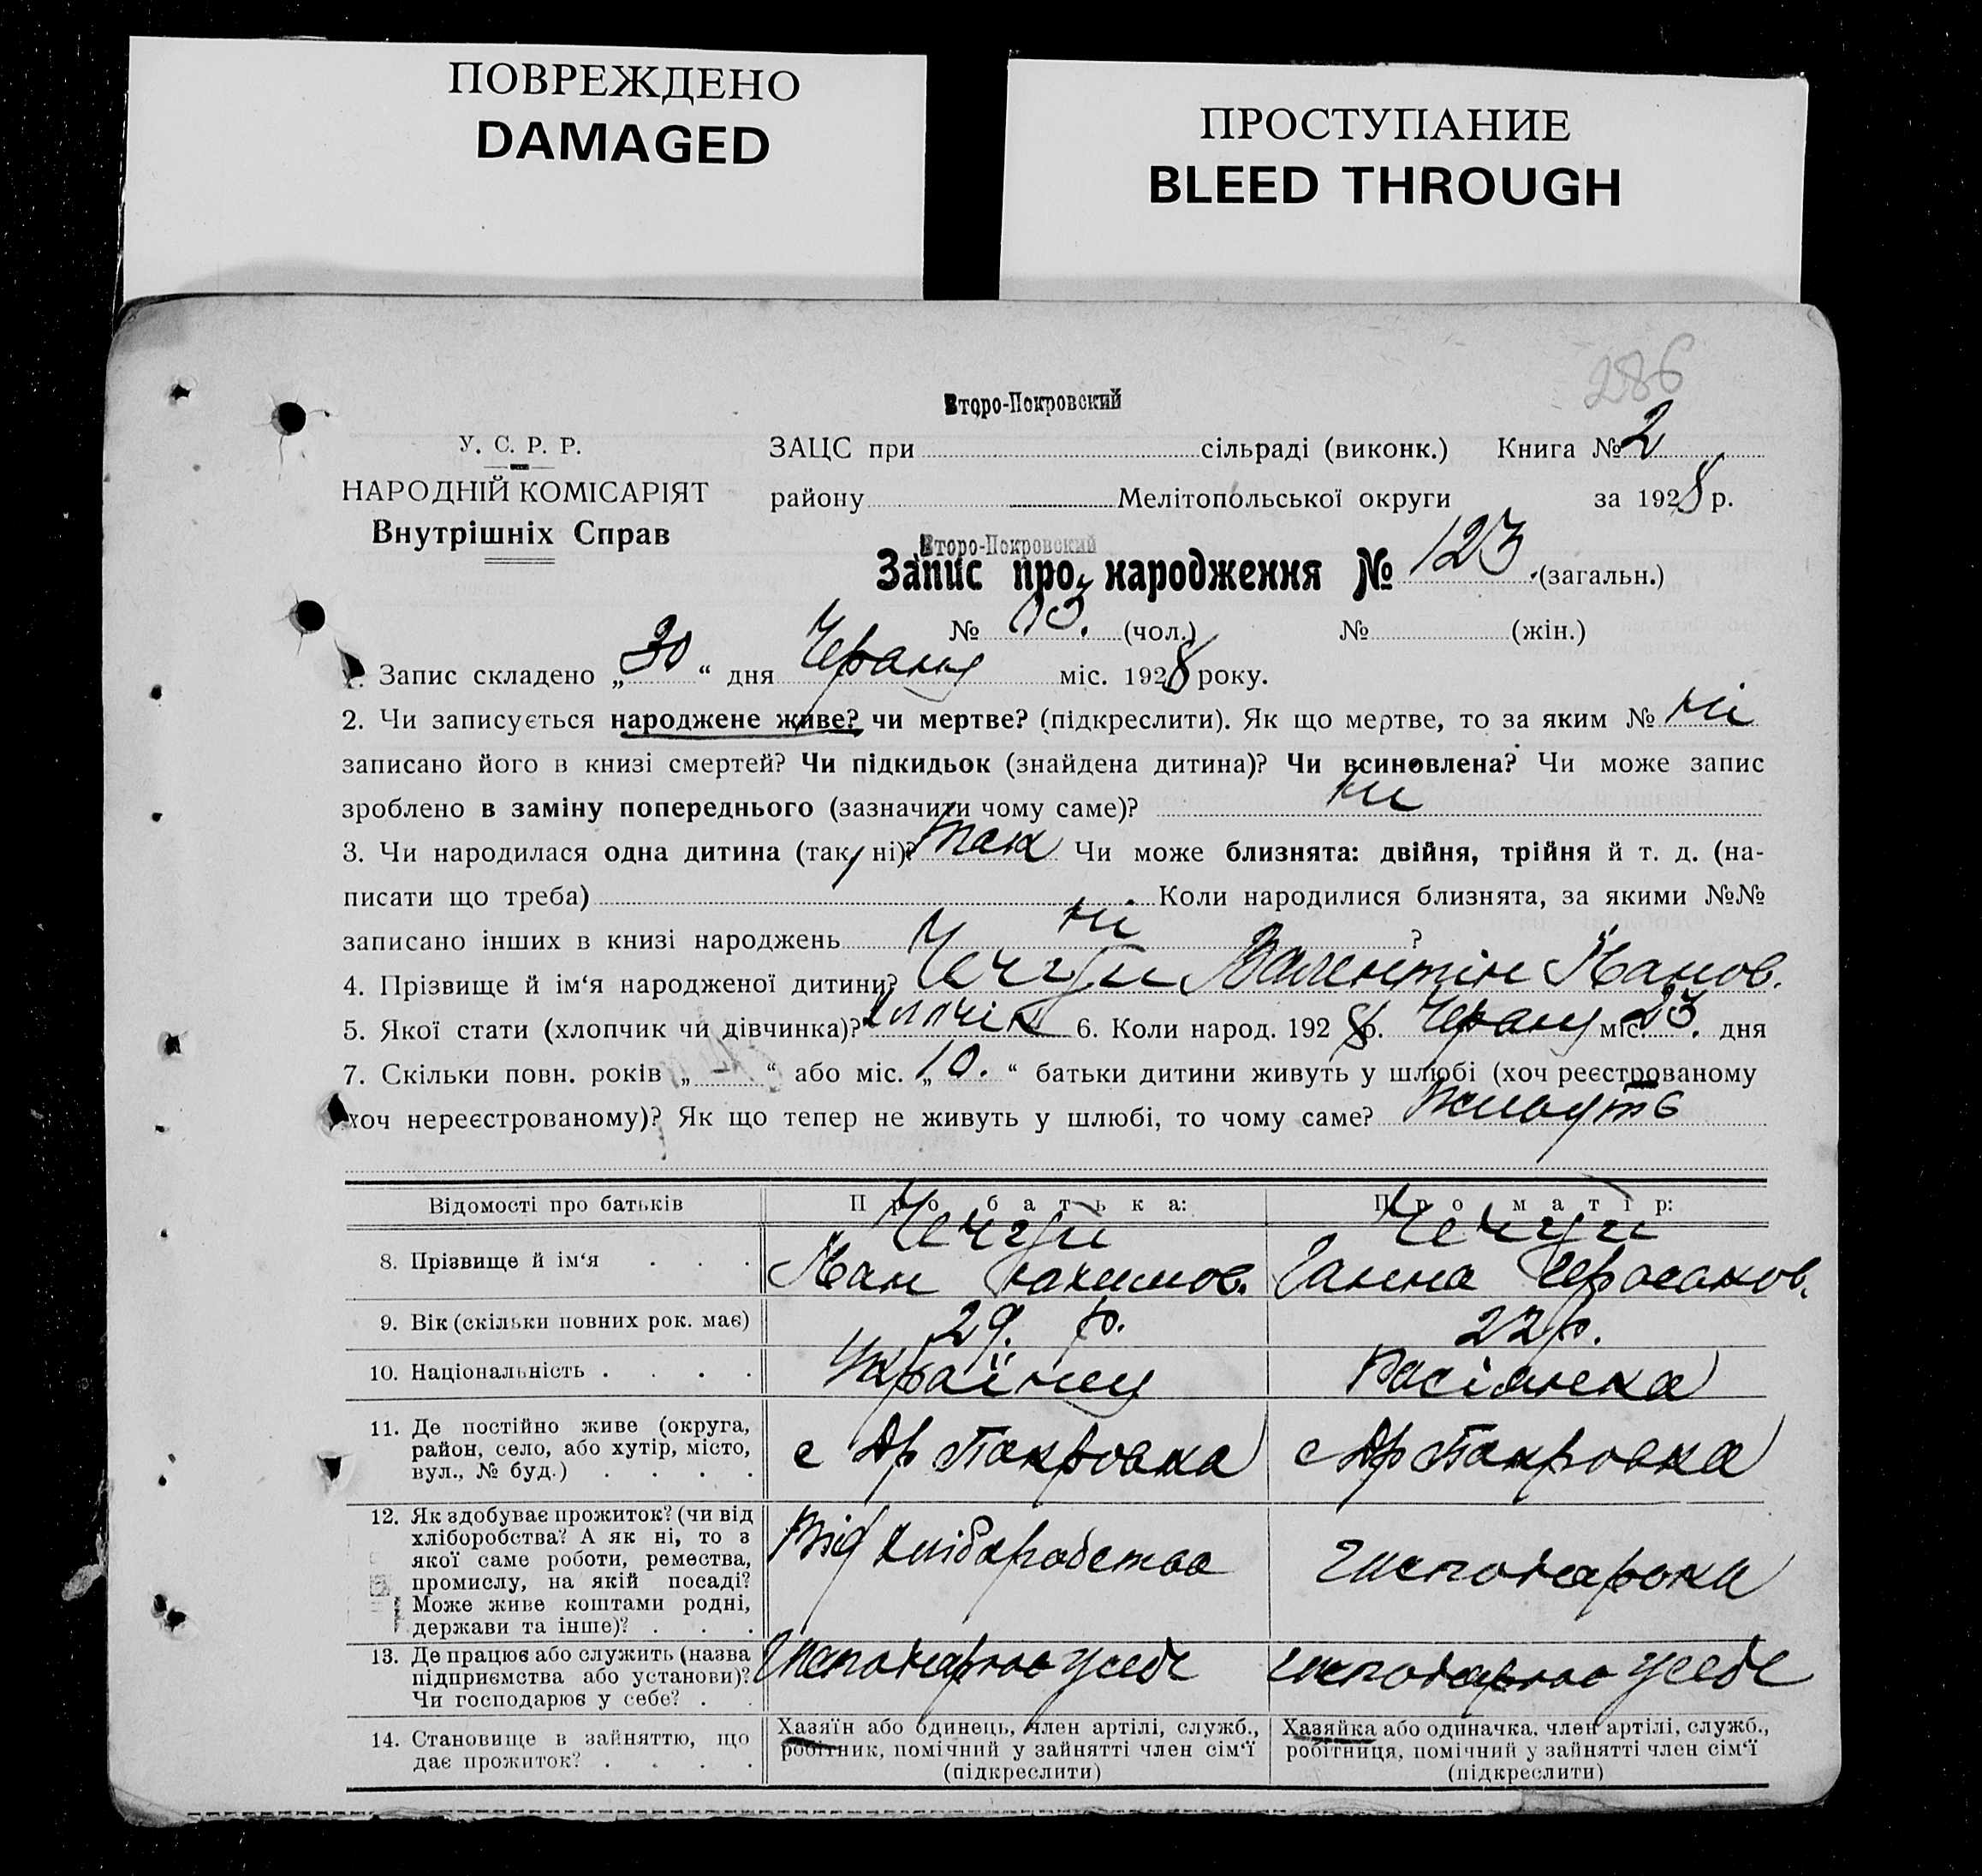 ПОВРЕЖДЕНО
DAMAGED
ПРОСТУПАНИЕ
BLEED THROUGH
286
Второ-Покровский
У. С. Р. Р.
НАРОДНІЙ КОМІСАРІЯТ
Внутрішніх Справ
ЗАЦС при сільраді (виконк.) Книга № 2
району Мелітопольської округи за 1928 р.
Второ-Покровский
Запис про народження № 123 (загальн.)
№ (чол.) № (жін.)
1. Запис складено „30“ дня міс. 1928 року.
2. Чи записується народжене живе? чи мертве? (підкреслити). Як що мертве, то за яким № ні
записано його в книзі смертей? Чи підкидьок (знайдена дитина)? Чи всиновлена? Чи може запис
зроблено в заміну попереднього (зазначити чому саме)? ни
3. Чи народилася одна дитина (так, ні)? так Чи може близнята: двійня, трійня й т. д. (на-
писати що треба) Коли народилися близнята, за якими №№
записано інших в книзі народжень ні ?
4. Прізвище й ім‘я народженої дитини? Валентін Иванов.
5. Якої стати (хлопчик чи дівчинка)? 6. Коли народ. 1928 р. міс. 23. дня
7. Скільки повн. років „ — “ або міс. „10.“ батьки дитини живуть у шлюбі (хоч реєстрованому
хоч нереєстрованому)? Як що тепер не живуть у шлюбі, то чому саме?
Відомості про батьків Про батька: Про матір:
8. Прізвище й ім‘я . . . Иван Ганна
9. Вік (скільки повних рок. має) 29. р. 22 р.
10. Національність . . . . Українец Росіянка
11. Де постійно живе (округа, район, село, або хутір, місто, вул., № буд.) . . . . с Др Покровка с Др Покровка
12. Як здобуває прожиток? (чи від хліборобства? А як ні, то з якої саме роботи, ремества, промислу, на якій посаді? Може живе коштами родні, держави та інше)? . . . Від хліборобства
13. Де працює або служить (назва підприємства або установи)? Чи господарює у себе? . . у себе у себе
14. Становище в зайняттю, що дає прожиток? . . . .
Хазяїн або одинець, член артілі, служб., робітник, помічний у зайнятті член сім‘ї (підкреслити)
Хазяйка або одиначка, член артілі, служб., робітниця, помічний у зайнятті член сім‘ї (підкреслити)